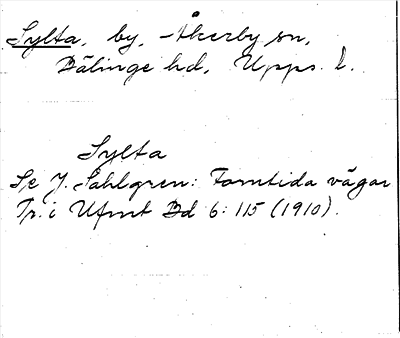 Sylta, by, Åkerby sn,
Bälinge hd, Upps. l.
Sylta
Se J. Sahlgren: Forntida vägar
Tr. i Ufmt Bd 6: 115 (1910).